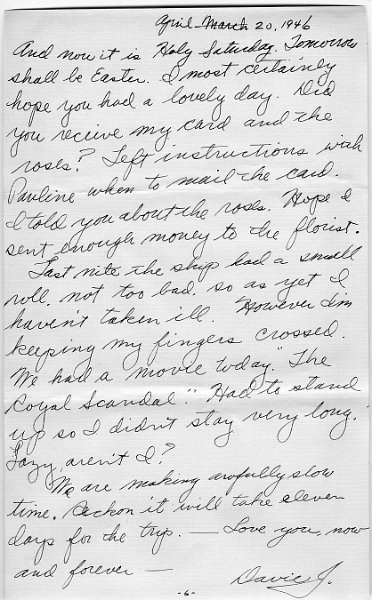 April March 20, 1946
And now it is Holy Saturday. Tomorrow
shall be Easter. I most certainly
hope you had a lovely day. Did
you recieve my card and the
roses? Left instructions with
Pauline when to mail the card.
I told you about the roses. Hope I
sent enough money to the florist.
Last nite the ship had a small
roll, not too bad, so as yet I
haven't taken ill. However I'm
keeping my fingers crossed.
We had a movie today "The
Royal Scandal". Had to stand
up so I didn't stay very long.
Lazy, aren't I?
We are making awfully slow
time. Reckon it will take eleven
days for the trip. — Love you, now
and forever —
Davie J.
-6-